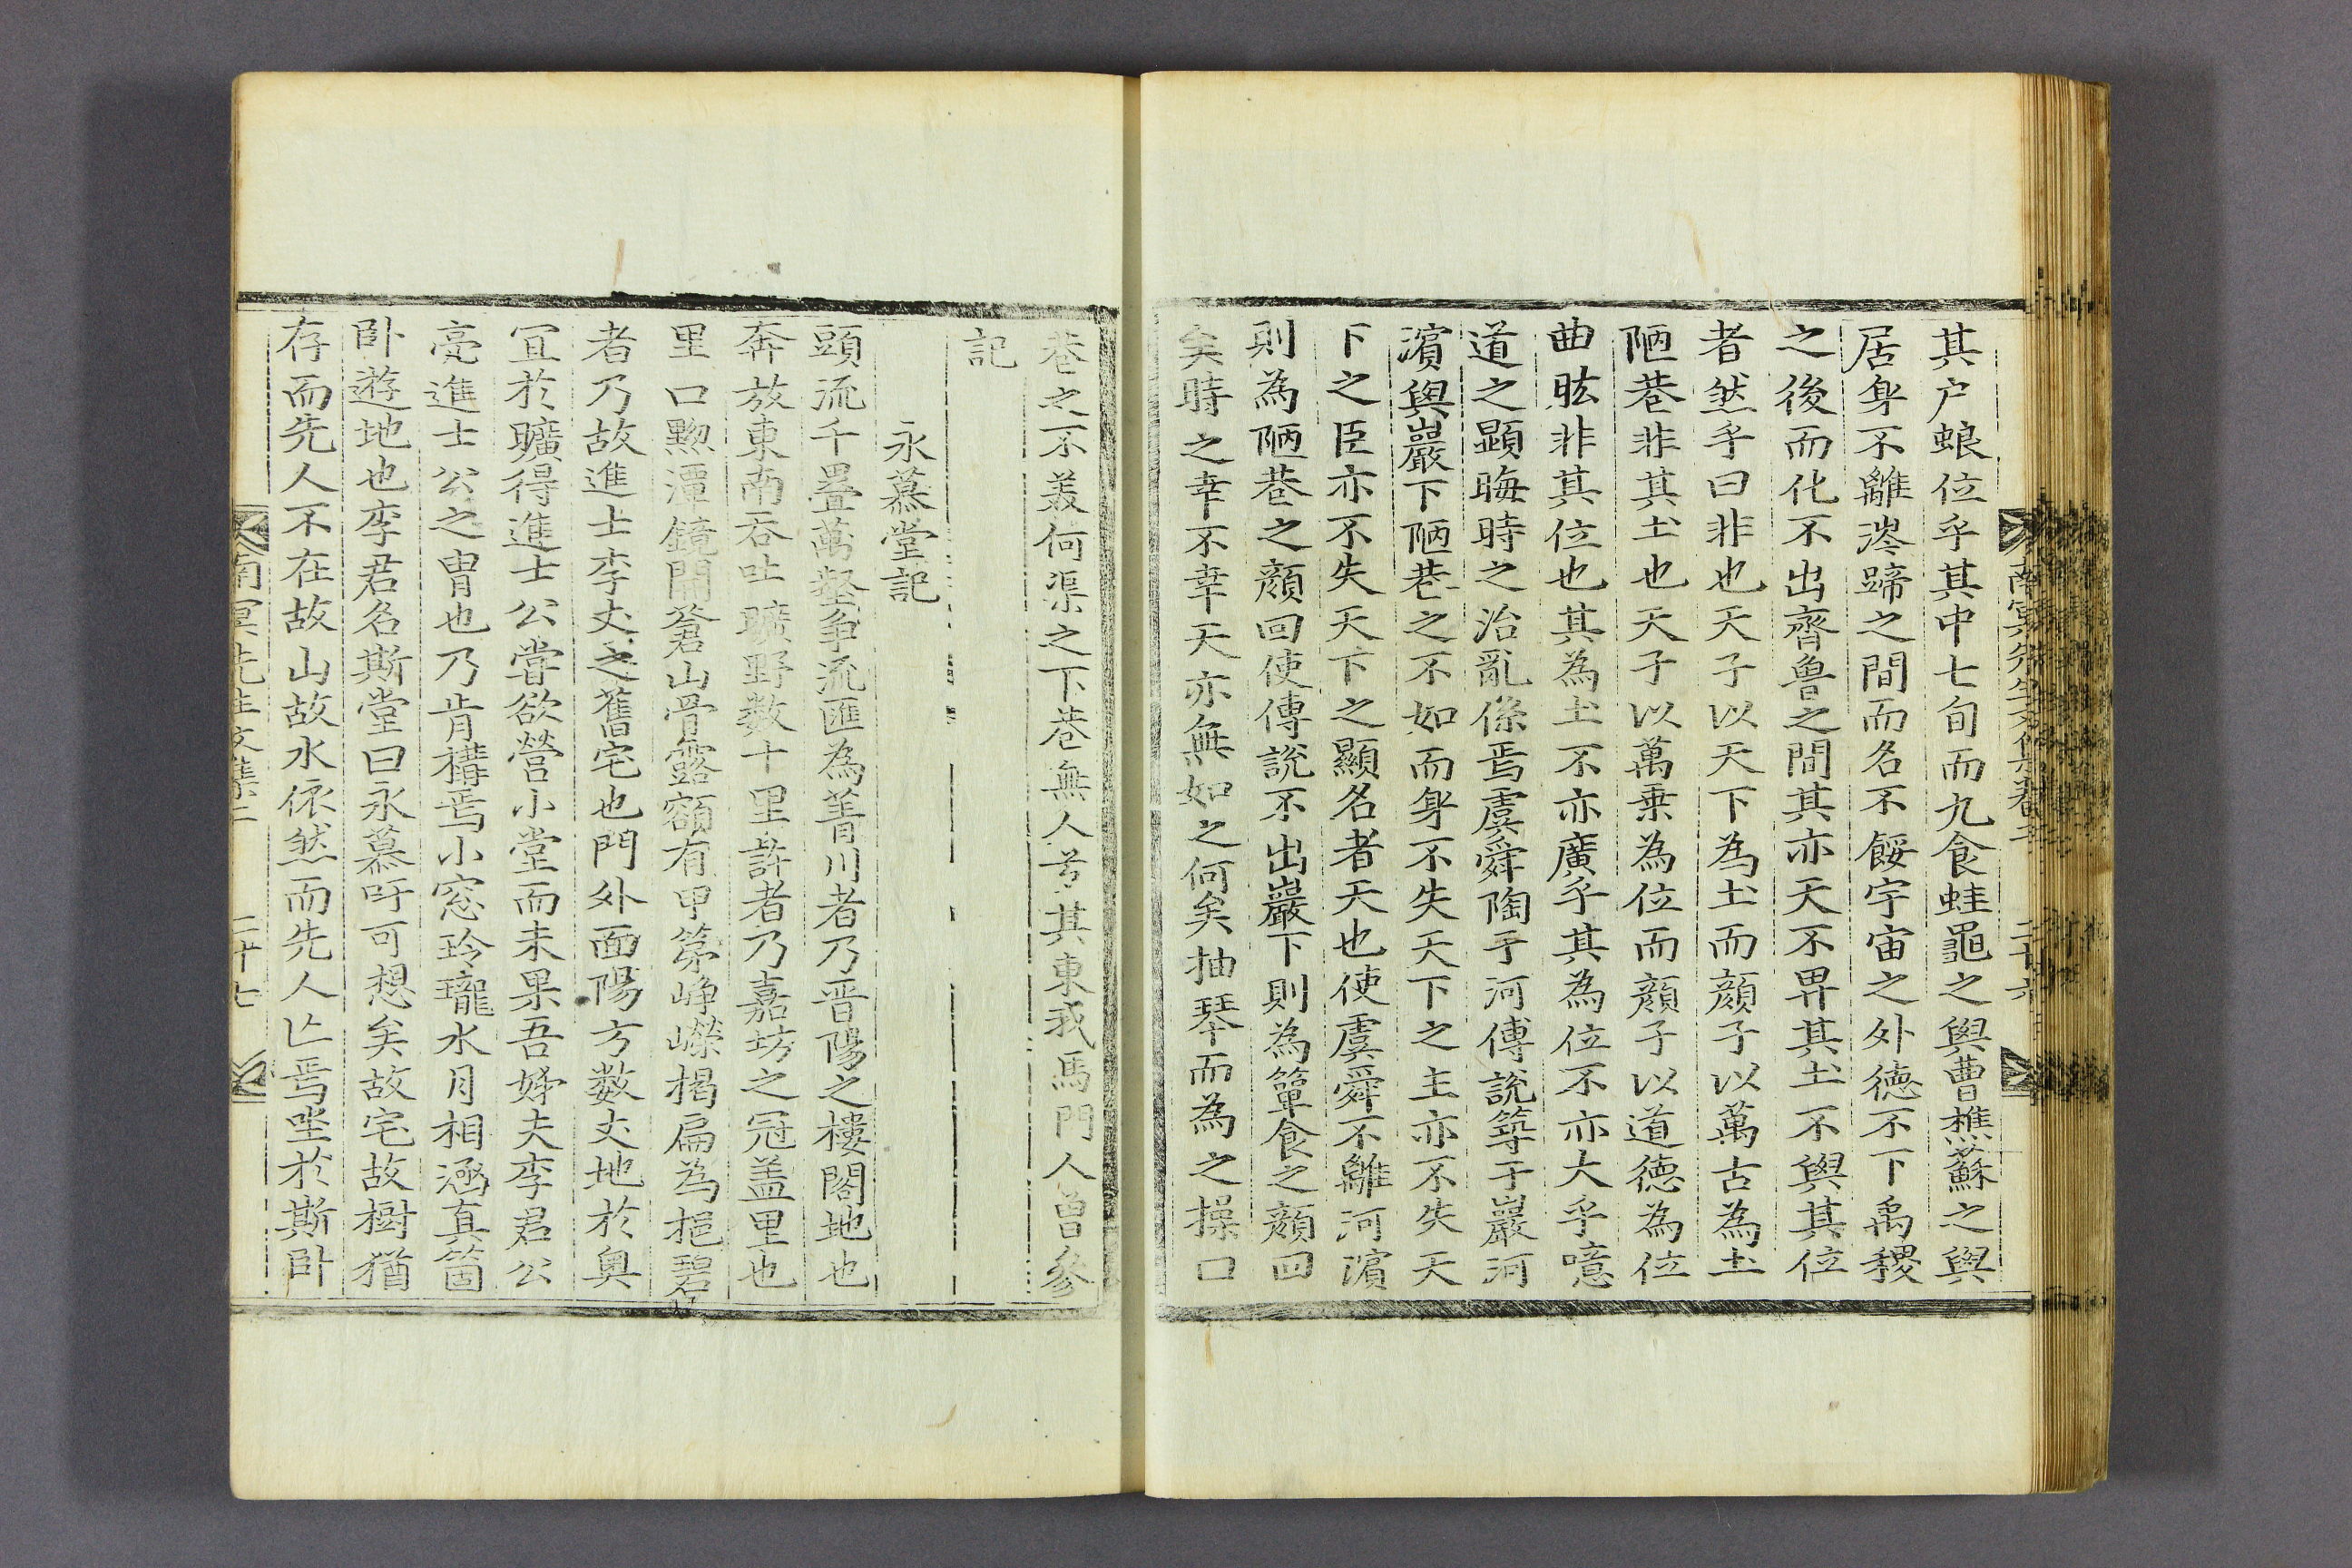 南冥先生文集卷二 二十六
其户蜋位乎其中七旬而九食蛙黽之與曹樵蘇之與
居身不離涔蹄之間而名不餒宇宙之外德不下禹稷
之後而化不出齊魯之間其亦天不畀其土不與其位
者然乎曰非也天子以天下為土而顔子以萬古為土
陋巷非其土也天子以萬乗為位而顔子以道德為位
曲肱非其位也其為土不亦廣乎其為位不亦大乎噫
道之顯晦時之治亂係焉虞舜陶于河傅說築于巖河
濵與巖下陋巷之不如而身不失天下之主亦不失天
下之臣亦不失天下之顯名者天也使虞舜不離河濵
則為陋巷之顔回使傅說不出巖下則為簞食之顔回
矣時之幸不幸天亦無如之何矣抽琴而為之操口
巷之不羙何渠之下巷無人兮其東我馬門人曾參
記
永慕堂記
頭流千疊萬壑爭流匯為菁川者乃晋陽之樓閣地也
奔放東南吞吐曠野数十里許者乃嘉坊之冠盖里也
里口黝潭鏡開蒼山骨露額有甲第崢嶸楬扁為挹碧
者乃故進士李丈之舊宅也門外面陽方数丈地於奥
冝於曠得進士公嘗欲營小堂而未果吾姊夫李君公
亮進士公之胄也乃肯構焉小窓玲瓏水月相涵真箇
卧遊地也李君名斯堂曰永慕吁可想矣故宅故樹猶
存而先人不在故山故水依然而先人亡焉坐於斯卧
南冥先生文集二 二十七